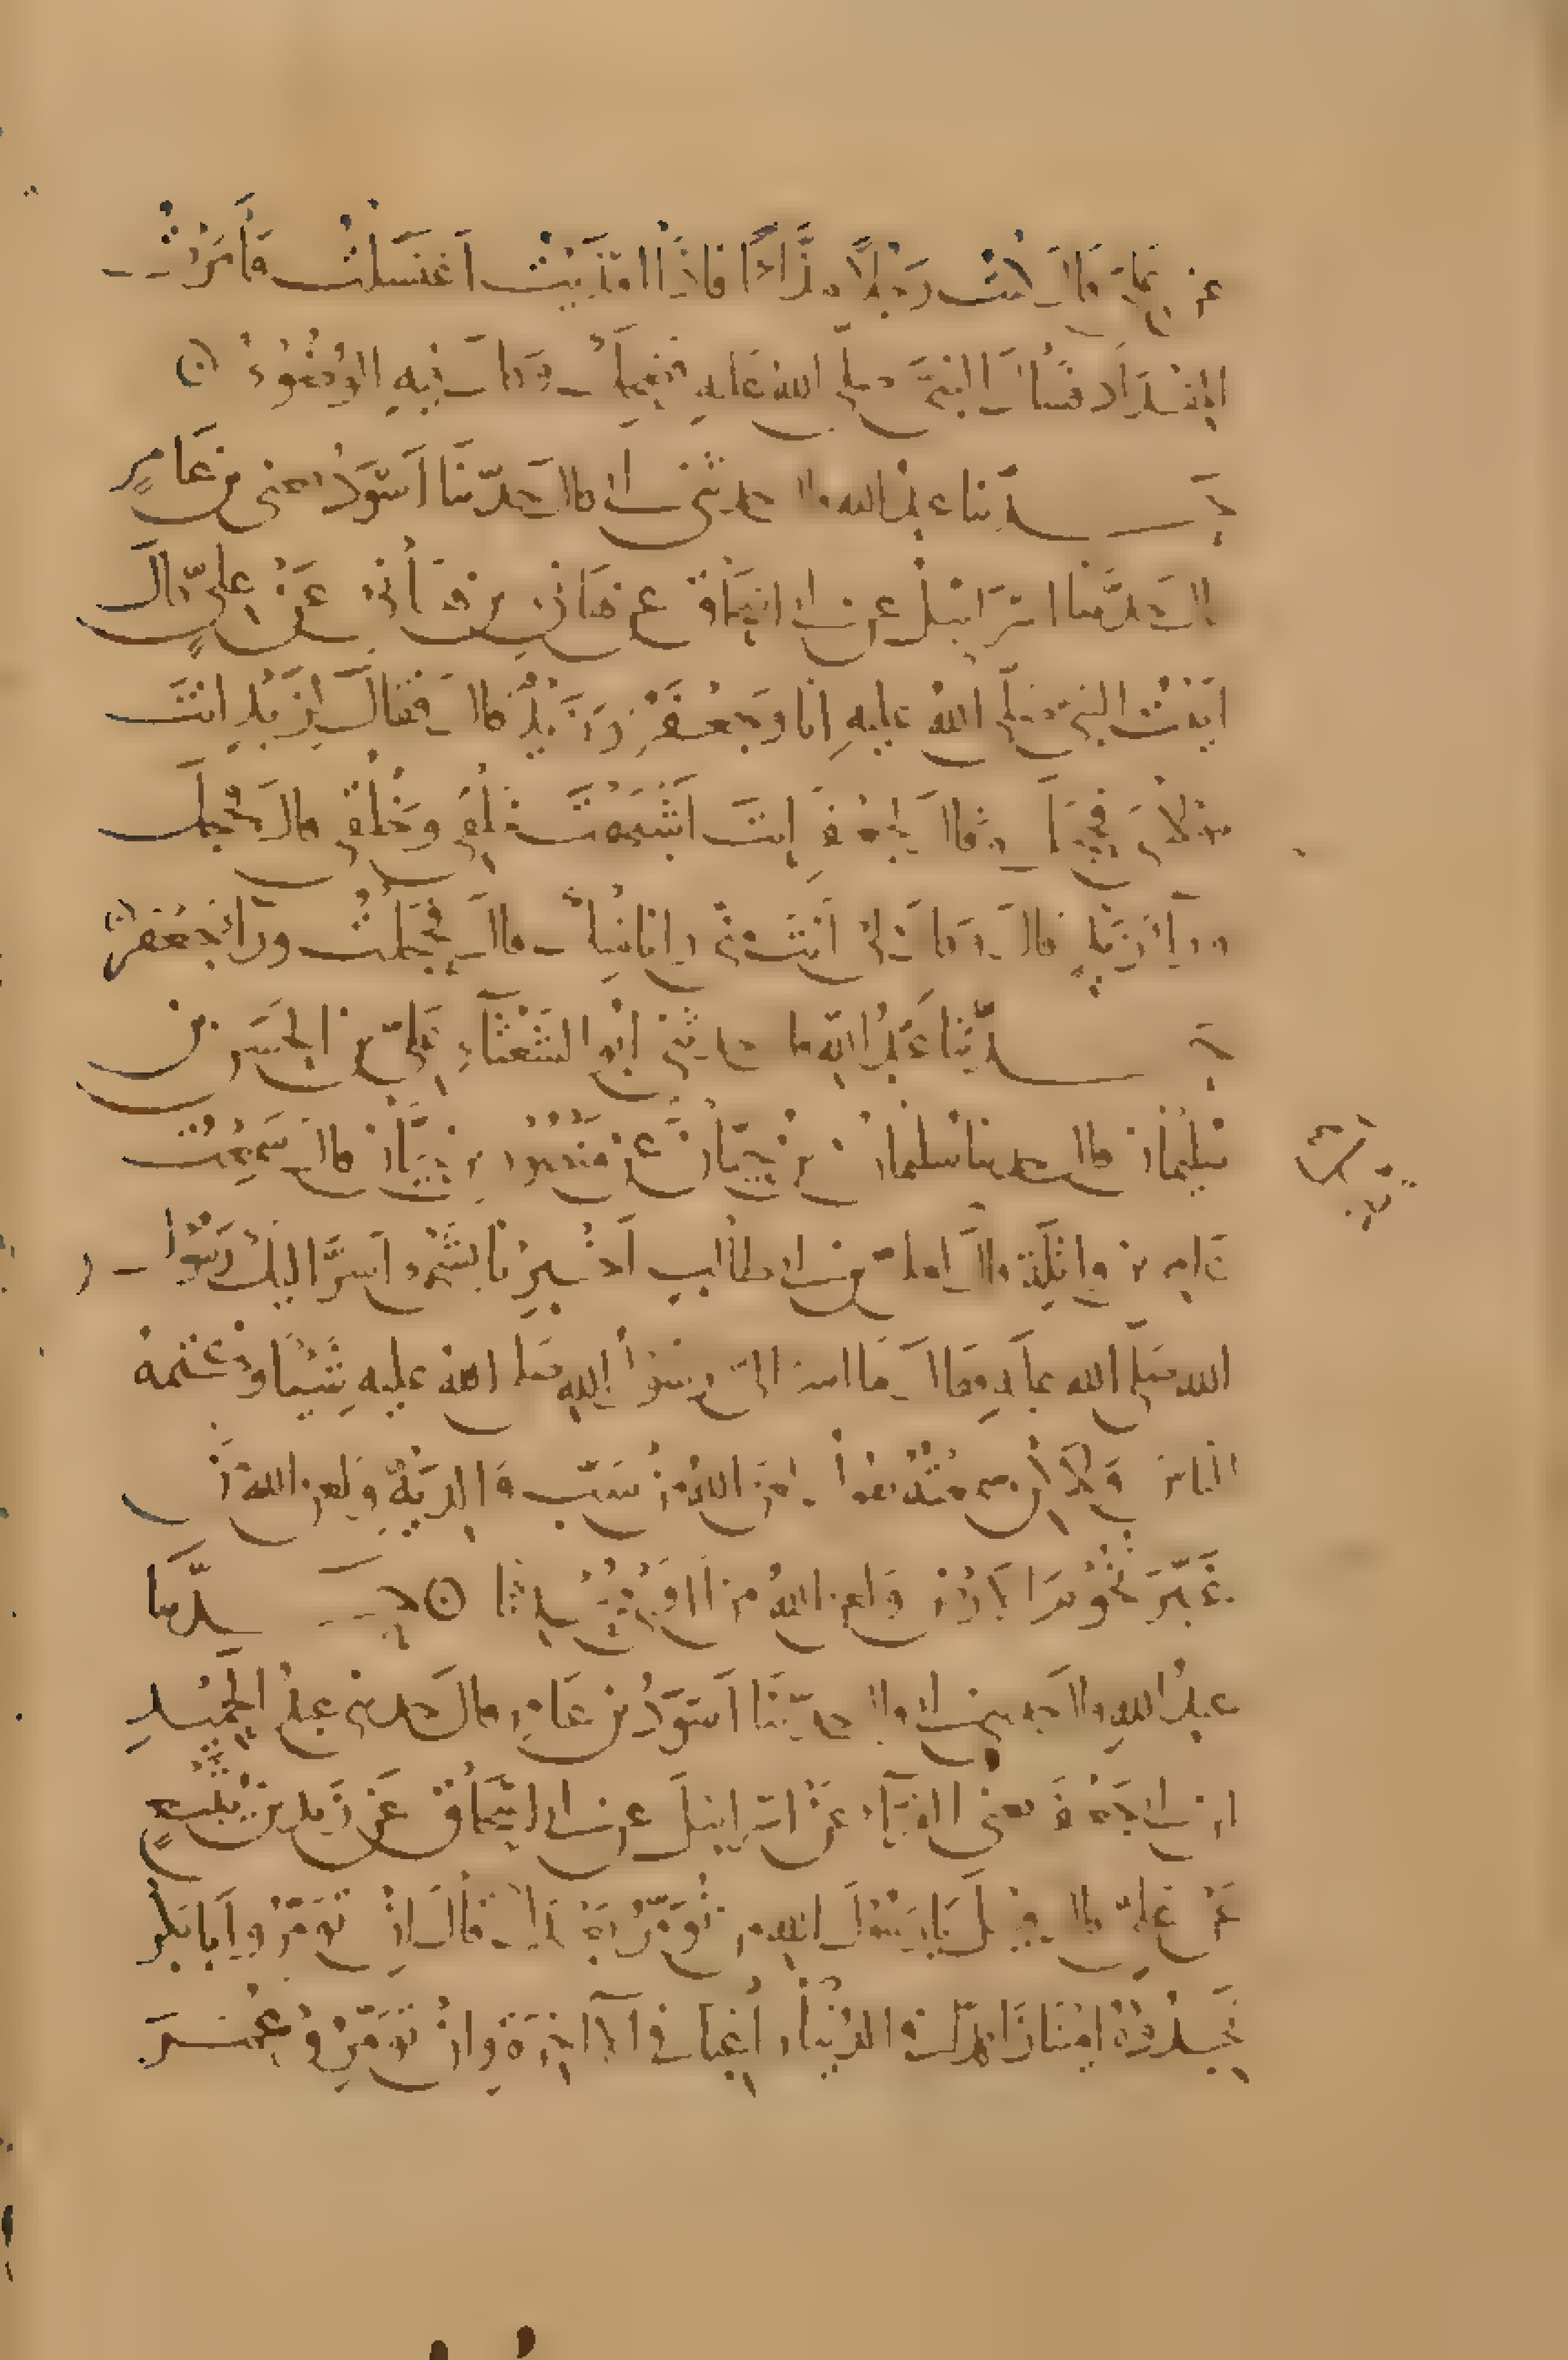 عن علي قال كنت رجلا مذاء فاذا امذيت اغتسلت فأمرت
المقداد فسأل النبي صلى الله عليه فضحك وقال فيه الوضوء
حدثنا عبد الله قال حدثني ابي قال حدثنا اسود يعني بن عامر
قال حدثنا اسرائيل عن ابي اسحاق عن هانئ بن هانئ عن علي قال
اتيت النبي صلى الله عليه انا وجعفر وزيد قال فقال لزيد انت
مولاي فحجل وقال لجعفر انت اشبهت خلقي وخلقي قال فحجل
وراء زيد قال وقال لي أنت مني وانا منك قال فحجلت وراء جعفر
حدثنا عبد الله قال حدثني ابو الشعثاء علي بن الحسن بن
سليمان قال حدثنا سليمان بن حيان عن منصور بن حيان قال سمعت
عامر بن واثلة قال قيل لعلي بن ابي طالب اخبرنا بشيء اسر اليك رسول
الله صلى الله عليه فقال ما اسر الي رسول الله صلى الله عليه شيئا وكتمه
الناس ولكن سمعته يقول لعن الله من سب والديه ولعن الله من
غير تخوم الارض ولعن الله من اوى محدثا حدثنا
عبد الله قال حدثني ابي قال حدثنا اسود بن عامر قال حدثني عبد الحميد
ابن ابي جعفر يعني الفراء عن اسرائيل عن ابي اسحاق عن زيد بن يثيع
عن علي قال قيل يا رسول الله من نؤمر بعدك قال ان تؤمروا ابا بكر
تجدوه امينا زاهدا في الدنيا راغبا في الآخرة وان تؤمروا عمر